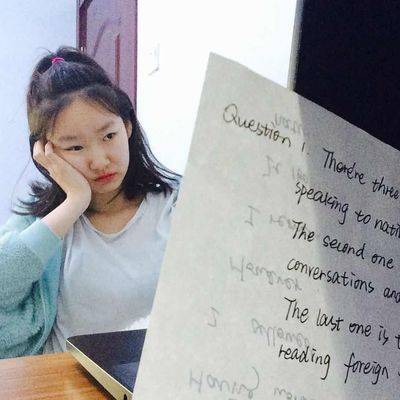 Question 1. There three
speaking to nati
The second one
conversations and
The last one is t
reading foreign